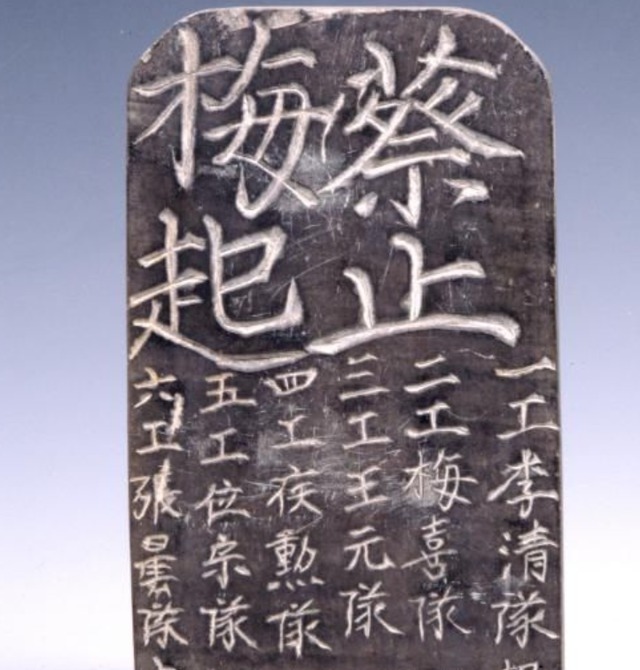 蔡止
梅起
一工李清隊
二工梅喜隊
三工王元隊
四工侯勳隊
五工位宗隊
六工張隊